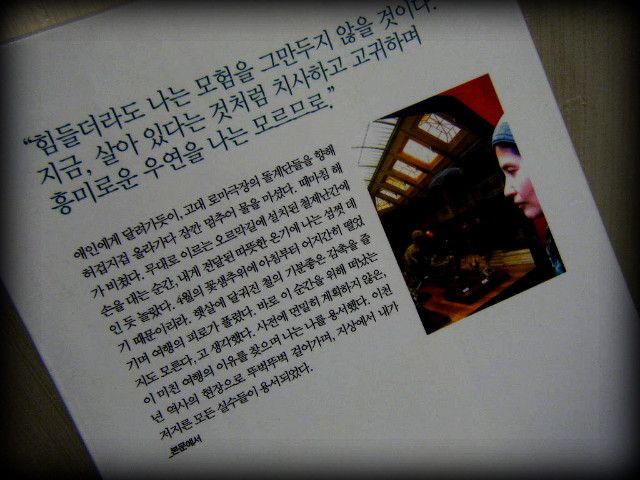 “힘들더라도 나는 모험을 그만두지 않을 것이다.
지금, 살아 있다는 것처럼 치사하고 고귀하며
흥미로운 우연을 나는 모르므로.”
애인에게 달려가듯이, 고대 로마극장의 돌계단들을 향해
허겁지겁 올라가다 잠깐 멈추어 물을 마셨다. 때마침 해
가 비쳤다. 무대로 이르는 오르막길에 설치된 철제난간에
손을 대는 순간, 내게 전달된 따뜻한 온기에 나는 섬찟 대
인 듯 놀랐다. 4월의 꽃샘추위에 아침부터 어지간히 떨었
기 때문이리라. 햇살에 달궈진 철의 기분좋은 감촉을 즐
기며 여행의 피로가 풀렸다. 바로 이 순간을 위해 떠났는
지도 모른다, 고 생각했다. 사전에 면밀히 계획하지 않은,
이 미친 여행의 이유를 찾으며 나는 나를 용서했다. 이천
년 역사의 현장으로 뚜벅뚜벅 걸어가며, 지상에서 내가
저지른 모든 실수들이 용서되었다.
_본문에서